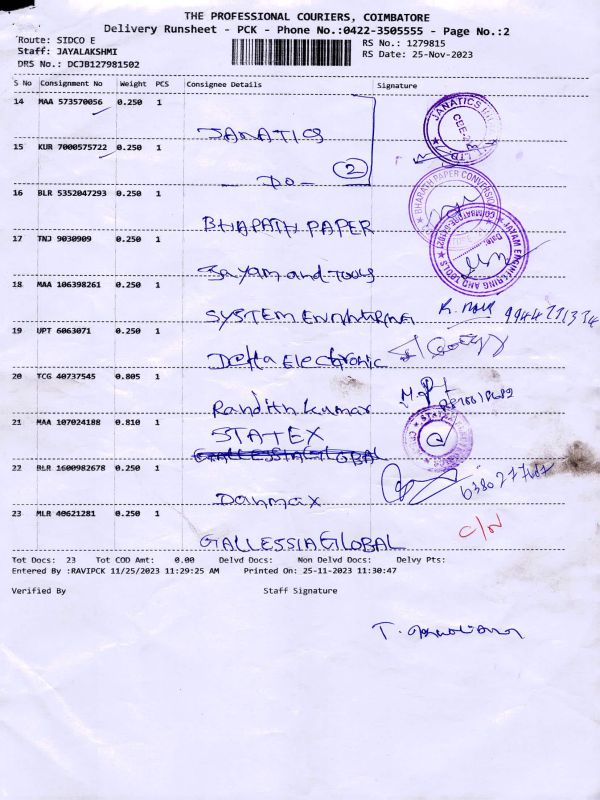 THE PROFESSIONAL COURIERS, COIMBATORE
Delivery Runsheet - PCK - Phone No.:0422-3505555 - Page No.:2
Route: SIDCO E
RS No.: 1279815
Staff: JAYALAKSHMI
RS Date: 25-Nov-2023
DRS No.: DCJB127981502
S No Consignment No Weight PCS Consignee Details Signature
14 MAA 573570056 0.250 1
JANATICS
15 KUR 7000575722 0.250 1
DO 2
16 BLR 5352047293 0.250 1
BHARATH PAPER
17 TNJ 9030909 0.250 1
Jayam and Tools
18 MAA 106398261 0.250 1
SYSTEM ENGINEERING
19 UPT 6063071 0.250 1
Delta Electronic
20 TCG 40737545 0.805 1
Randith Kumar
21 MAA 107024188 0.810 1
STATEX
GALLESSIA GLOBAL
22 BLR 1600982678 0.250 1
Danmax
23 MLR 40621281 0.250 1
C/N
GALLESSIA GLOBAL
Tot Docs: 23 Tot COD Amt: 0.00 Delvd Docs: Non Delvd Docs: Delvy Pts:
Entered By :RAVIPCK 11/25/2023 11:29:25 AM Printed On: 25-11-2023 11:30:47
Verified By Staff Signature